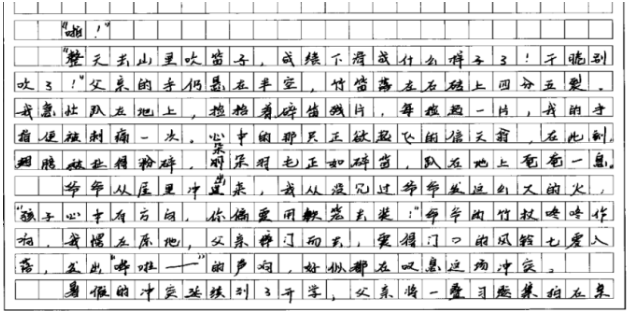 "啪！"
"整天去山里吹笛子，成绩下滑成什么样子了！干脆别
吹了！"父亲的手仍悬在半空，竹笛落在石砖上四分五裂。
我急扯趴在地上，捡拾着碎笛残片，每捡起一片，我的手
指便被刺痛一次。心中的那只正欲起飞的信天翁，在此刻
翅膀被扯得粉碎，羽毛正如碎笛，趴在地上奄奄一息。
爷爷从屋里冲出来，我从没见过爷爷发这么大的火，
"孩子心中有方向，你偏要用软笼去装！"爷爷的竹杖咚咚作
响，我愣在原地，父亲摔门而去，震得门口的风铃七零八
落，发出"哗啦——"的声响，好似都在叹息这场冲突。
暑假的冲突延续到了开学，父亲将一叠习题集拍在桌